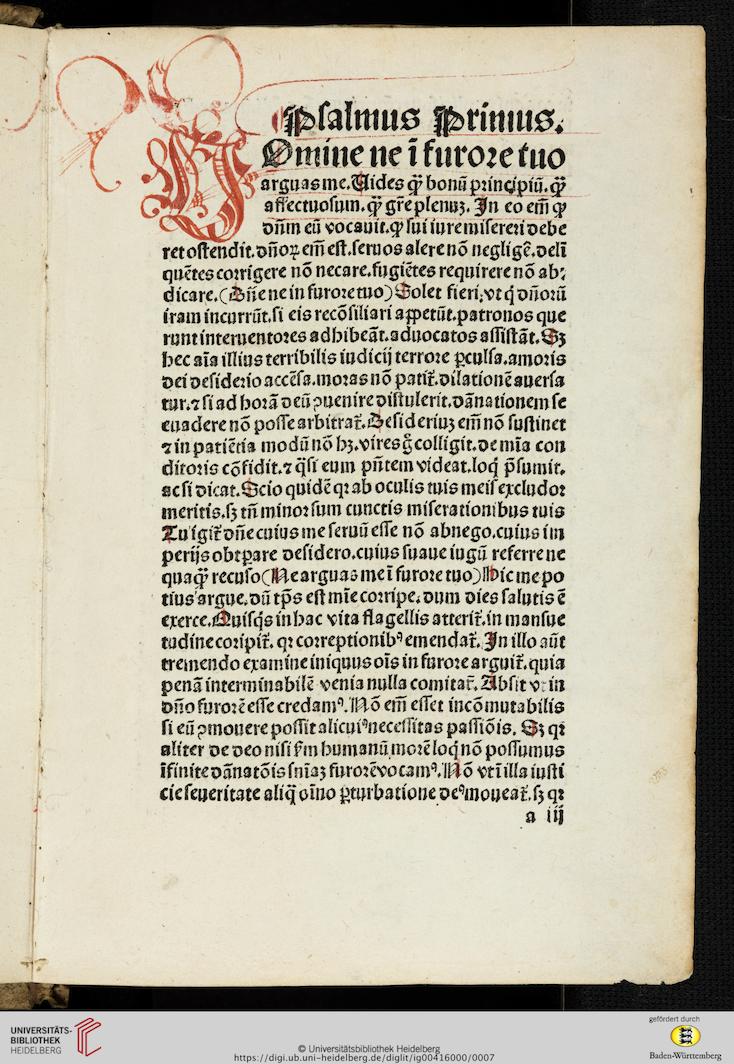 Psalmus Primus.
Domine ne ī furore tuo
arguas me. Uides qꝫ bonū principiū. qꝫ
affectuosum. qꝫ gr̄e plenuꝫ. In eo em̄ ꝙ
dn̄m eū vocauit. ꝙ sui iure misereri debe
ret ostendit. dn̄oꝝ em̄ est. seruos alere nō negligē. deli
quētes corrigere nō necare. fugiētes requirere nō ab⸗
dicare. (Dn̄e ne in furore tuo) Solet fieri. vt q̇ dn̄orū
iram incurrūt. si eis recōsiliari appetūt. patronos que
runt interuentores adhibeāt. aduocatos assistāt. Sꝫ
hec aīa illius terribilis iudicij terrore ꝑculsa. amoris
dei desiderio accēsa. moras nō patit᷑. dilationē auersa
tur. ⁊ si ad horā deū ꝓuenire distulerit. dānationem se
euadere nō posse arbitrat᷑. Desideriuꝫ em̄ nō sustinet
⁊ in patiētia modū nō hꝫ. vires g̊ colligit. de mīa con
ditoris cōfidit. ⁊ q̄si eum pn̄tem videat. loq̇ p̄sumit.
ac si dicat. Scio quidē qꝛ ab oculis tuis meis excludor
meritis. sꝫ tn̄ minor sum cunctis miserationibus tuis
Tu igit᷑ dn̄e cuius me seruū esse nō abnego. cuius im
perijs obtꝑare desidero. cuius suaue iugū referre ne
quaqꝫ recuso (Ne arguas me ī furore tuo) Hic me po
tius argue. dū tp̄s est mīe corripe. dum dies salutis ē
exerce. Quisq̇s in hac vita flagellis atterit᷑. in mansue
tudine coripit᷑. qꝛ correptionibꝰ emendat᷑. In illo aūt
tremendo examine iniquus oīs in furore arguit᷑. quia
penā interminabilē venia nulla comitat᷑. Absit vt in
dn̄o furorē esse credamꝰ. Nō em̄ esset incōmutabilis
si eū ꝯmouere possit alicuiꝰ necessitas passiōis. Sꝫ qꝛ
aliter de deo nisi ẜm humanū morē loq̇ nō possumus
īfinite dānatōis sn̄iaꝫ furorē vocamꝰ. Nō vt ī illa iusti
cie seueritate aliq̇ oīno ꝑturbatione deꝰ moueat᷑. sꝫ qꝛ
a iij
UNIVERSITÄTS-
BIBLIOTHEK
HEIDELBERG
© Universitätsbibliothek Heidelberg
https://digi.ub.uni-heidelberg.de/diglit/ig00416000/0007
gefördert durch
Baden-Württemberg